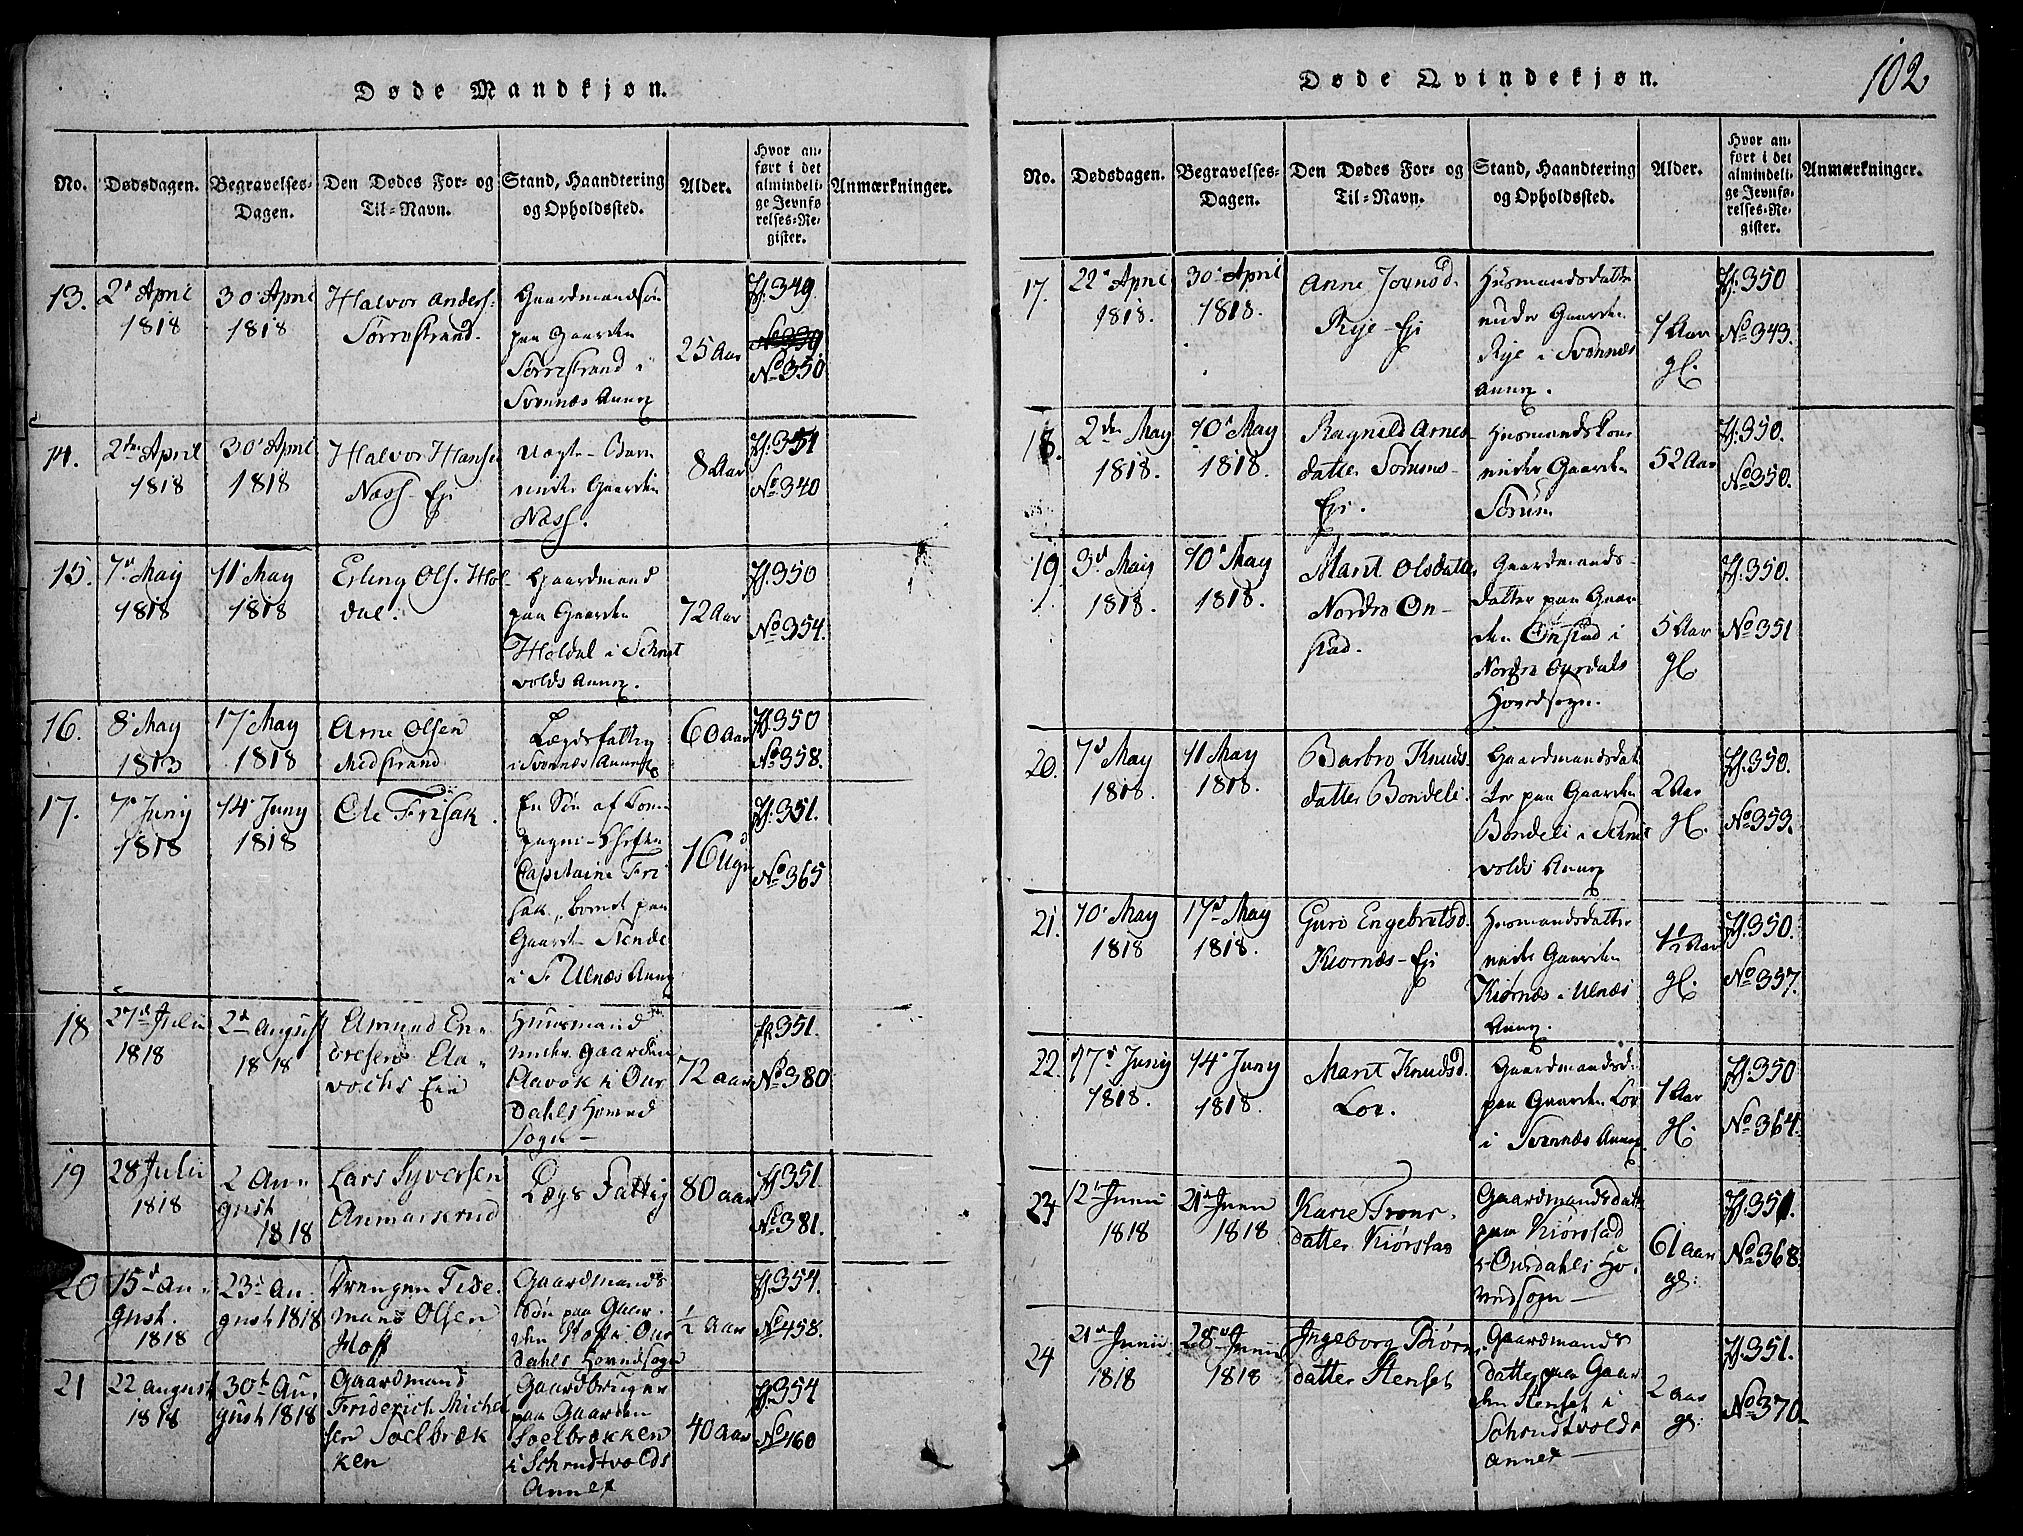 Døde Mandkjøn.
No.
Dødsdagen.
Begravelses-
Dagen.
Den Dødes For- og
Til-Navn.
Stand, Haandtering
og Opholdssted.
Alder.
Hvor an-
ført i det
almindeli-
ge Jevnfø-
relses-Re-
gister.
Anmærkninger.
13.
2d April
1818
30 April
1818
Halvor Anders:
Sørrestrand.
Gaardmandsøn
paa Gaarden
Sørrestrand i
Svennæs Annex
25 Aar
349
No 350
14.
2den April
1818
30 April
1818
Halvor Hansen
Næss-Eje
Barn
under Gaarden
Næss.
8 Aar
351
No 340
15.
7d May
1818
11 May
1818
Erling Ols. Høl-
dal.
Gaardmand
paa Gaarden
Høldal i Schrut
volds Annex.
72 Aar
350
No 354.
16.
8 May
1813
17 May
1818
Arne Olsen
Midstrand
Lægdsfattig
i Svennæs Annex
60 Aar
350
No 358.
17.
7 Juny
1818
14 Juny
1818
Ole Frisak.
En Søn af Com-
pagni-Chefen
Capitaine Fri
sak, boende paa
Gaard Stende
i Ulnæs Annex
16 Ugr
351.
No 365
18
27d Julii
1818
2d August
1818
Amund En-
dresens Ela-
vochs Eie
Huusmand
under Gaarden
Elavok i Our
Dahls Hoved
sogn
72 aar
351.
No 380
19
28 Julii
1818
2 Au-
gust
1818
Lars Syversen
Anmarkrud
Lægs Fattig
80 aar
351.
No 381.
20
15d Au-
gust.
1818
23d Au-
gust 1818
Drengen Tide-
mans Olsen
Hoff
Gaardmands
Søn paa Gaar-
den Hoff i Our
dahls Hovedsogn
½ aar
354.
No 458.
21
22 august
1818
30t Au-
gust 1818
Gaardmand
Friderich Michel
sen Soelbræk
ken
Gaardbruger
paa Gaarden
Soelbrækken
i Schrudtvolds
Annex
40 aar
354
No 460
102
Døde Qvindekjøn.
No.
Dødsdagen.
Begravelses-
Dagen.
Den Dødes For- og
Til-Navn.
Stand, Haandtering
og Opholdssted.
Alder.
Hvor an-
ført i det
almindeli-
ge Jevnfø-
relses-Re-
gister.
Anmærkninger.
17.
22 April
1818.
30 April
1818.
Anne Jovnsd.
Rye-Eje
Husmandsdatter
under Gaarden
Rye i Svennæs
Annex.
1 Aar
gl.
350
No 343.
18.
2den May
1818.
10 May
1818.
Ragnild Arnes
datter Sørums-
Eje.
Husmandskone
under Gaarden
Sørum
52 Aar
350.
No 350.
19
3d May
1818.
10 May
1818.
Marit Olsdatter
Nordre On-
stad.
Gaardmands-
datter paa Gaar
den Onstad i
Nordre Ourdals
Hovedsogn.
5 Aar
gl.
350.
No 351
20.
7d May
1818.
11 May
1818.
Barbro Knuds
datter Bondeli.
Gaardmandsdat
ter paa Gaarden
Bondeli i Schrut
volds Annex
2 Aar
gl.
350.
No 353.
21.
10 May
1818
17d May
1818.
Guro Engebretsd.
Kiørnæs-Eje
Husmandsdatter
under Gaarden
Kiørnæs i Ulnæs
Annex.
1½ Aar
gl.
350.
No 357.
22.
7d Juny
1818.
14 Juny
1818.
Marit Knudsd.
Lov.
Gaardmandsd:
paa Gaarden Lov
i Svennæs Annex
1 Aar
gl.
350
No 364.
23
12 Junii
1818
21d Junii
1818
Karie Trons-
datter Kiørstad
Gaardmandsdatt
paa Kiørstad
i Ourdahls Ho-
vedsogn
61 aar
gl:
351.
No 368.
24
21d Junii
1818
28d Junii
1818
Ingeborg Biørn
datter Stenset
Gaardmands
datter paa Gaar
den Stenset i
Schrudtvolds
annex
2 aar
gl:
351.
No 370